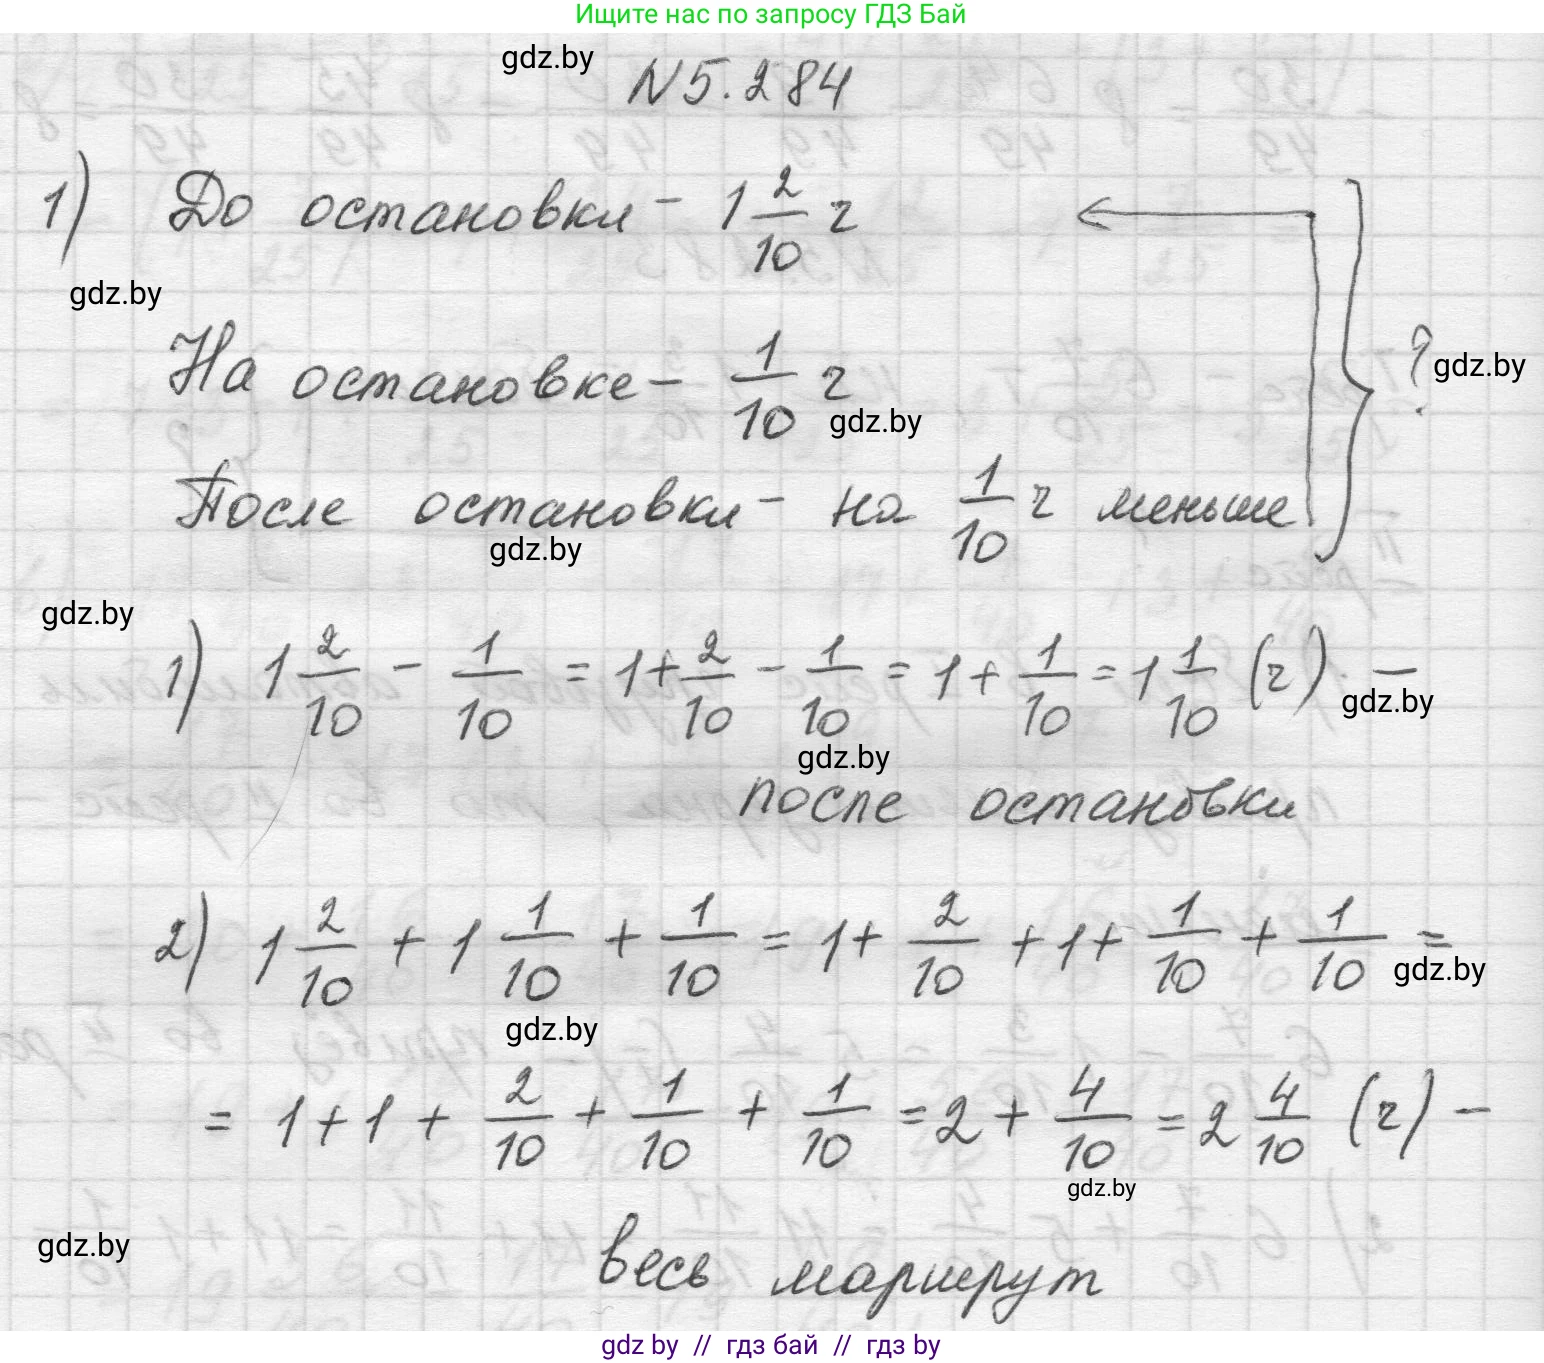 Ищите нас по запросу ГДЗ Бай
gdz.by
N 5.284
1) До остановки - 1 2/10 ч
gdz.by
На остановке - 1/10 ч
?
gdz.by
gdz.by
После остановки - на 1/10 ч меньше
gdz.by
gdz.by
1) 1 2/10 - 1/10 = 1 + 2/10 - 1/10 = 1 + 1/10 = 1 1/10 (ч) -
gdz.by
gdz.by
после остановки
2) 1 2/10 + 1 1/10 + 1/10 = 1 + 2/10 + 1 + 1/10 + 1/10 =
gdz.by
gdz.by
= 1 + 1 + 2/10 + 1/10 + 1/10 = 2 + 4/10 = 2 4/10 (ч) -
gdz.by
gdz.by
весь маршрут
gdz by // гдз бай // гдз by